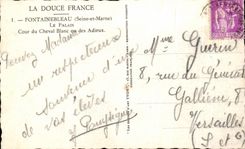 LA DOUCE FRANCE
1. — FONTAINEBLEAU (Seine-et-Marne)
Le Palais
Cour du Cheval Blanc ou des Adieux.
Madame
un respectueux
souvenir d'un
de vos élèves
Mme Guerin
8, rue du Général
Galliéni, 8
Versailles
(S et O)